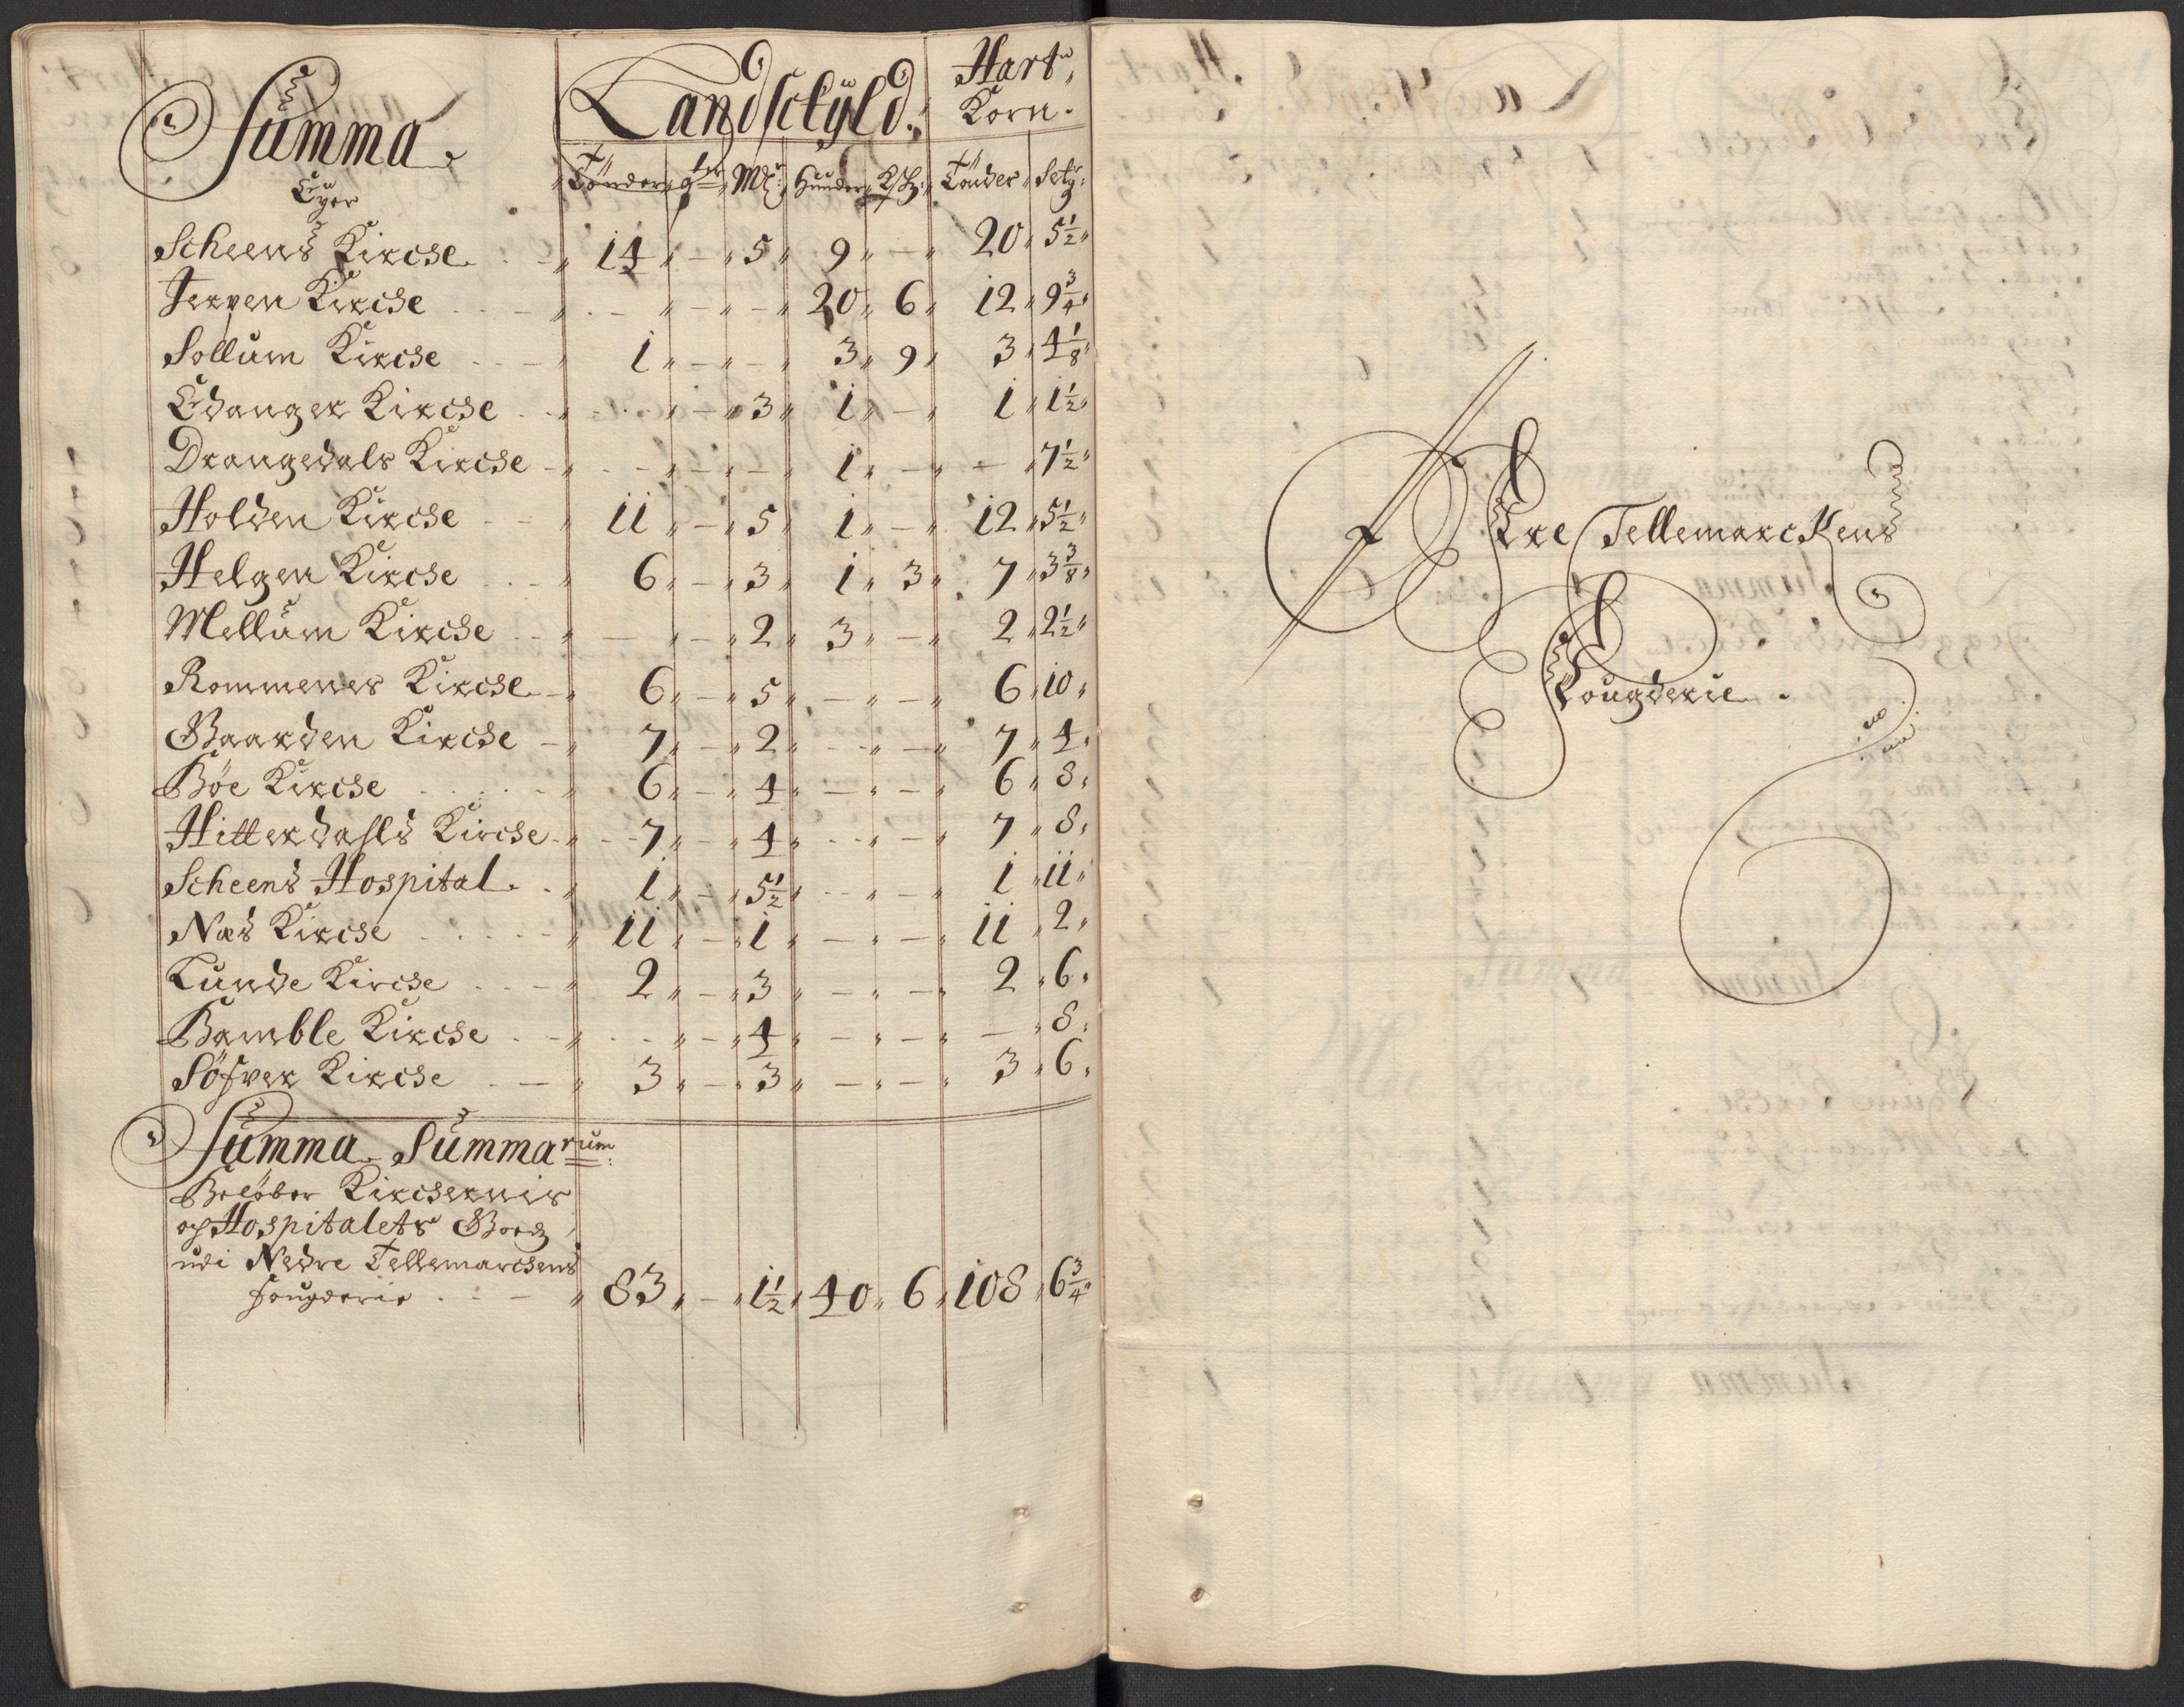 Summa
Landschÿld.
Hart
Korn.
Eger
Tönder Mk: Hunder Tönder Setg:
Scheens Kircke 14 – 5 9 – 20 5 1/2
Jerpen Kircke – – – 20 6 12 9 3/4
Sollum Kircke 1 – – 3 9 3 4 1/8
Edanger Kircke – – 3 1 – 1 1 1/2
Drangedals Kircke – – – 1 – – 7 1/2
Holden Kircke 11 – 5 1 – 12 5 1/2
Helgen Kircke 6 – 3 1 3 7 3 3/8
Mellum Kircke – – 2 3 – 2 2 1/2
Rommenes Kircke 6 – 5 – – 6 10
Gaarden Kircke 7 – 2 – – 7 4
Böe Kircke 6 – 4 – – 6 8
Hitterdahls Kircke 7 – 4 – – 7 8
Scheens Hospital 1 – 5 1/2 – – 1 11
Næs Kircke 11 – 1 – – 11 2
Lunde Kircke 2 – 3 – – 2 6
Bamble Kircke – – 4 – – – 8
Söfver Kircke 3 – 3 – – 3 6
Summa Summarum
Belöber Kirckernis
og Hospitalets Goedz
udi Nedre Tellemarckens
fougderie 83 – 1 1/2 40 6 108 6 3/4
Tellemarckens
Fougderie.